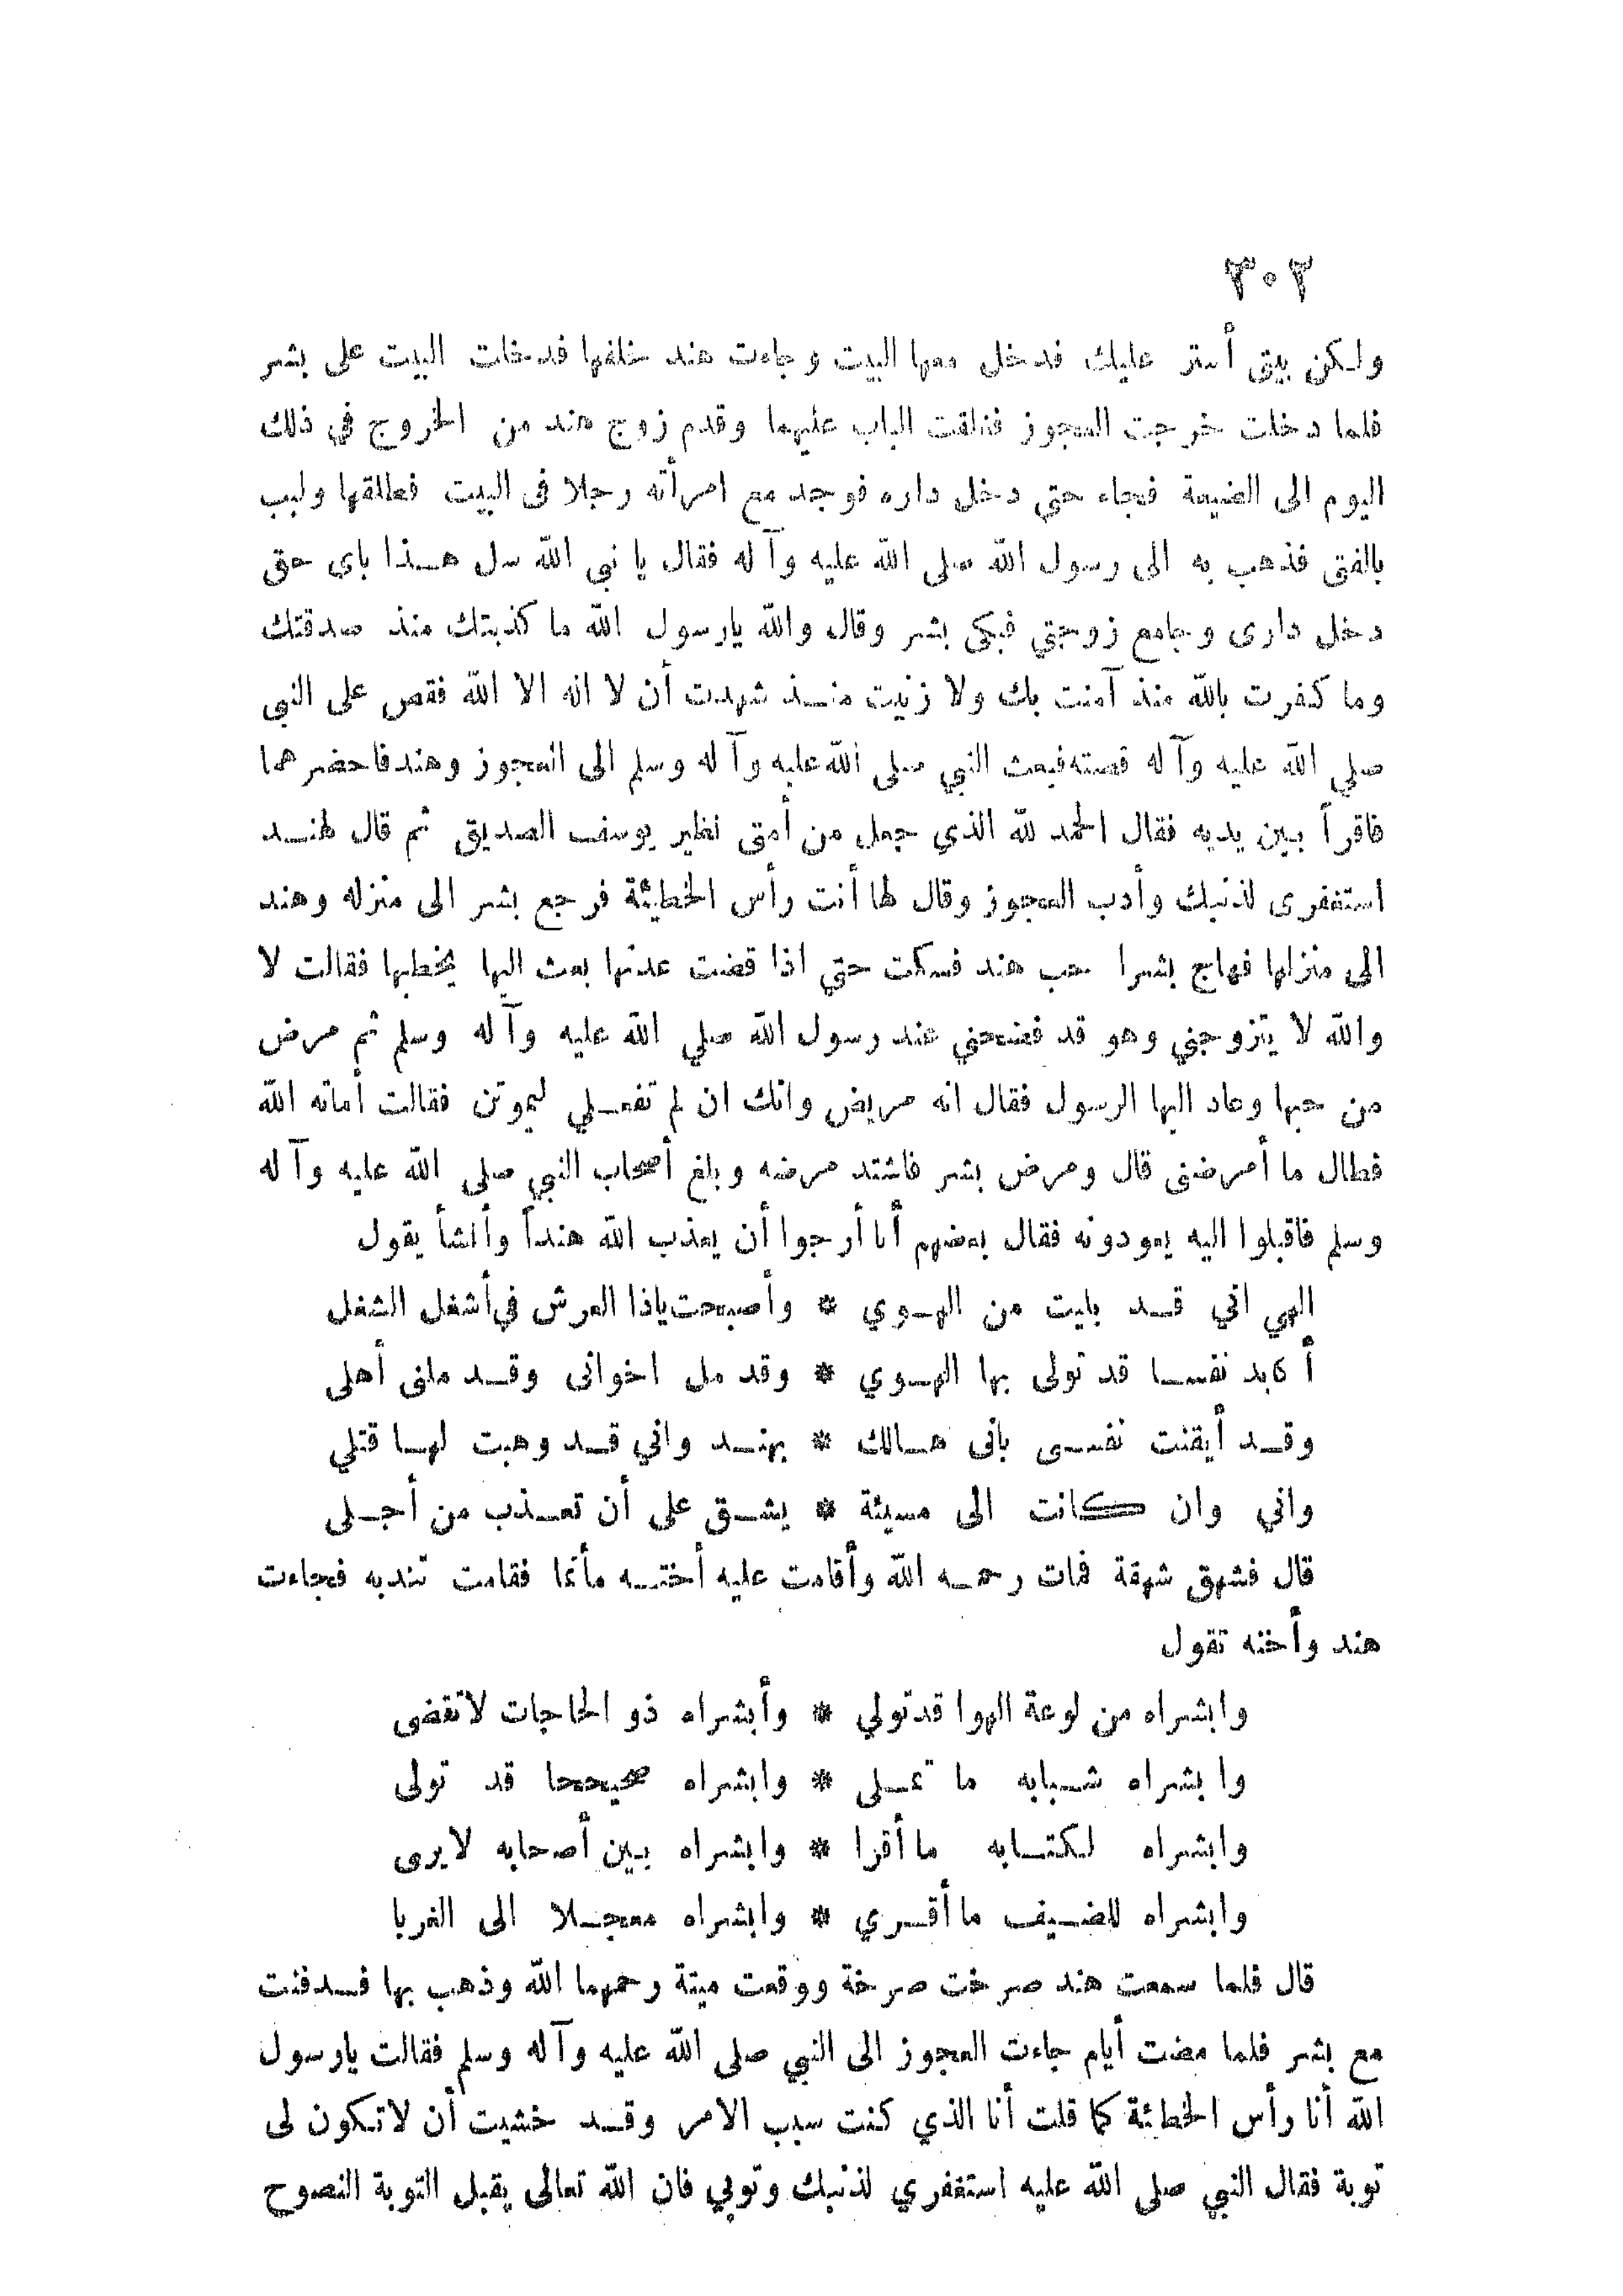 ٣٠٢
ولكن بيتي أستر عليك فدخل معها البيت وجاءت هند خلفها فدخلت البيت على بشر
فلما دخلت خرجت العجوز فغلقت الباب عليهما وقدم زوج هند من الخروج في ذلك
اليوم الى الضيعة فجاء حتي دخل داره فوجد مع امرأته رجلا فى البيت فطلقها ولبب
بالفتى فذهب به الى رسول الله صلى الله عليه وآله فقال يا نبي الله سل هذا باى حق
دخل دارى وجامع زوجتي فبكى بشر وقال والله يارسول الله ما كذبتك منذ صدقتك
وما كفرت بالله منذ آمنت بك ولا زنيت منذ شهدت أن لا اله الا الله فقص على النبي
صلي الله عليه وآله قصته فبعث النبي صلى الله عليه وآله وسلم الى العجوز وهند فاحضرهما
فاقرأ بين يديه فقال الحمد لله الذي جعل من أمتى نظير يوسف الصديق ثم قال لهند
استغفرى لذنبك وأدب العجوز وقال لها أنت رأس الخطيئة فرجع بشر الى منزله وهند
الى منزلها فهاج بشرا حب هند فسكت حتي اذا قضت عدتها بعث اليها يخطبها فقالت لا
والله لا يتزوجني وهو قد فضحني عند رسول الله صلي الله عليه وآله وسلم ثم مرض
من حبها وعاد اليها الرسول فقال انه مريض وانك ان لم تفعلي ليموتن فقالت أماته الله
فطال ما أمرضنى قال ومرض بشر فاشتد مرضه وبلغ أصحاب النبي صلى الله عليه وآله
وسلم فاقبلوا اليه يعودونه فقال بعضهم أنا أرجوا أن يعذب الله هنداً وأنشأ يقول
الهي اني قد بليت من الهوي * وأصبحت ياذا العرش في أشغل الشغل
أكابد نفسا قد تولى بها الهوي * وقد مل اخوانى وقد ملنى أهلى
وقد أيقنت نفسى بانى هالك * بهند واني قد وهبت لها قتلي
واني وان كانت الى مسيئة * يشق على أن تعذب من أجلى
قال فشهق شهقة فمات رحمه الله وأقامت عليه أخته مأتما فقامت تندبه فجاءت
هند وأخته تقول
وابشراه من لوعة الهوا قدتولي * وأبشراه ذو الحاجات لاتقضى
وابشراه شبابه ما تملى * وابشراه صحيححا قد تولى
وابشراه لكتابه ما أقرا * وابشراه بين أصحابه لايرى
وابشراه للضيف ما أقري * وابشراه معجلا الى الغربا
قال فلما سمعت هند صرخت صرخة ووقعت ميتة رحمهما الله وذهب بها فدفنت
مع بشر فلما مضت أيام جاءت العجوز الى النبي صلى الله عليه وآله وسلم فقالت يارسول
الله أنا رأس الخطائة كما قلت أنا الذي كنت سبب الامر وقد خشيت أن لاتكون لى
توبة فقال النبي صلى الله عليه استغفري لذنبك وتوبي فان الله تعالى يقبل التوبة النصوح